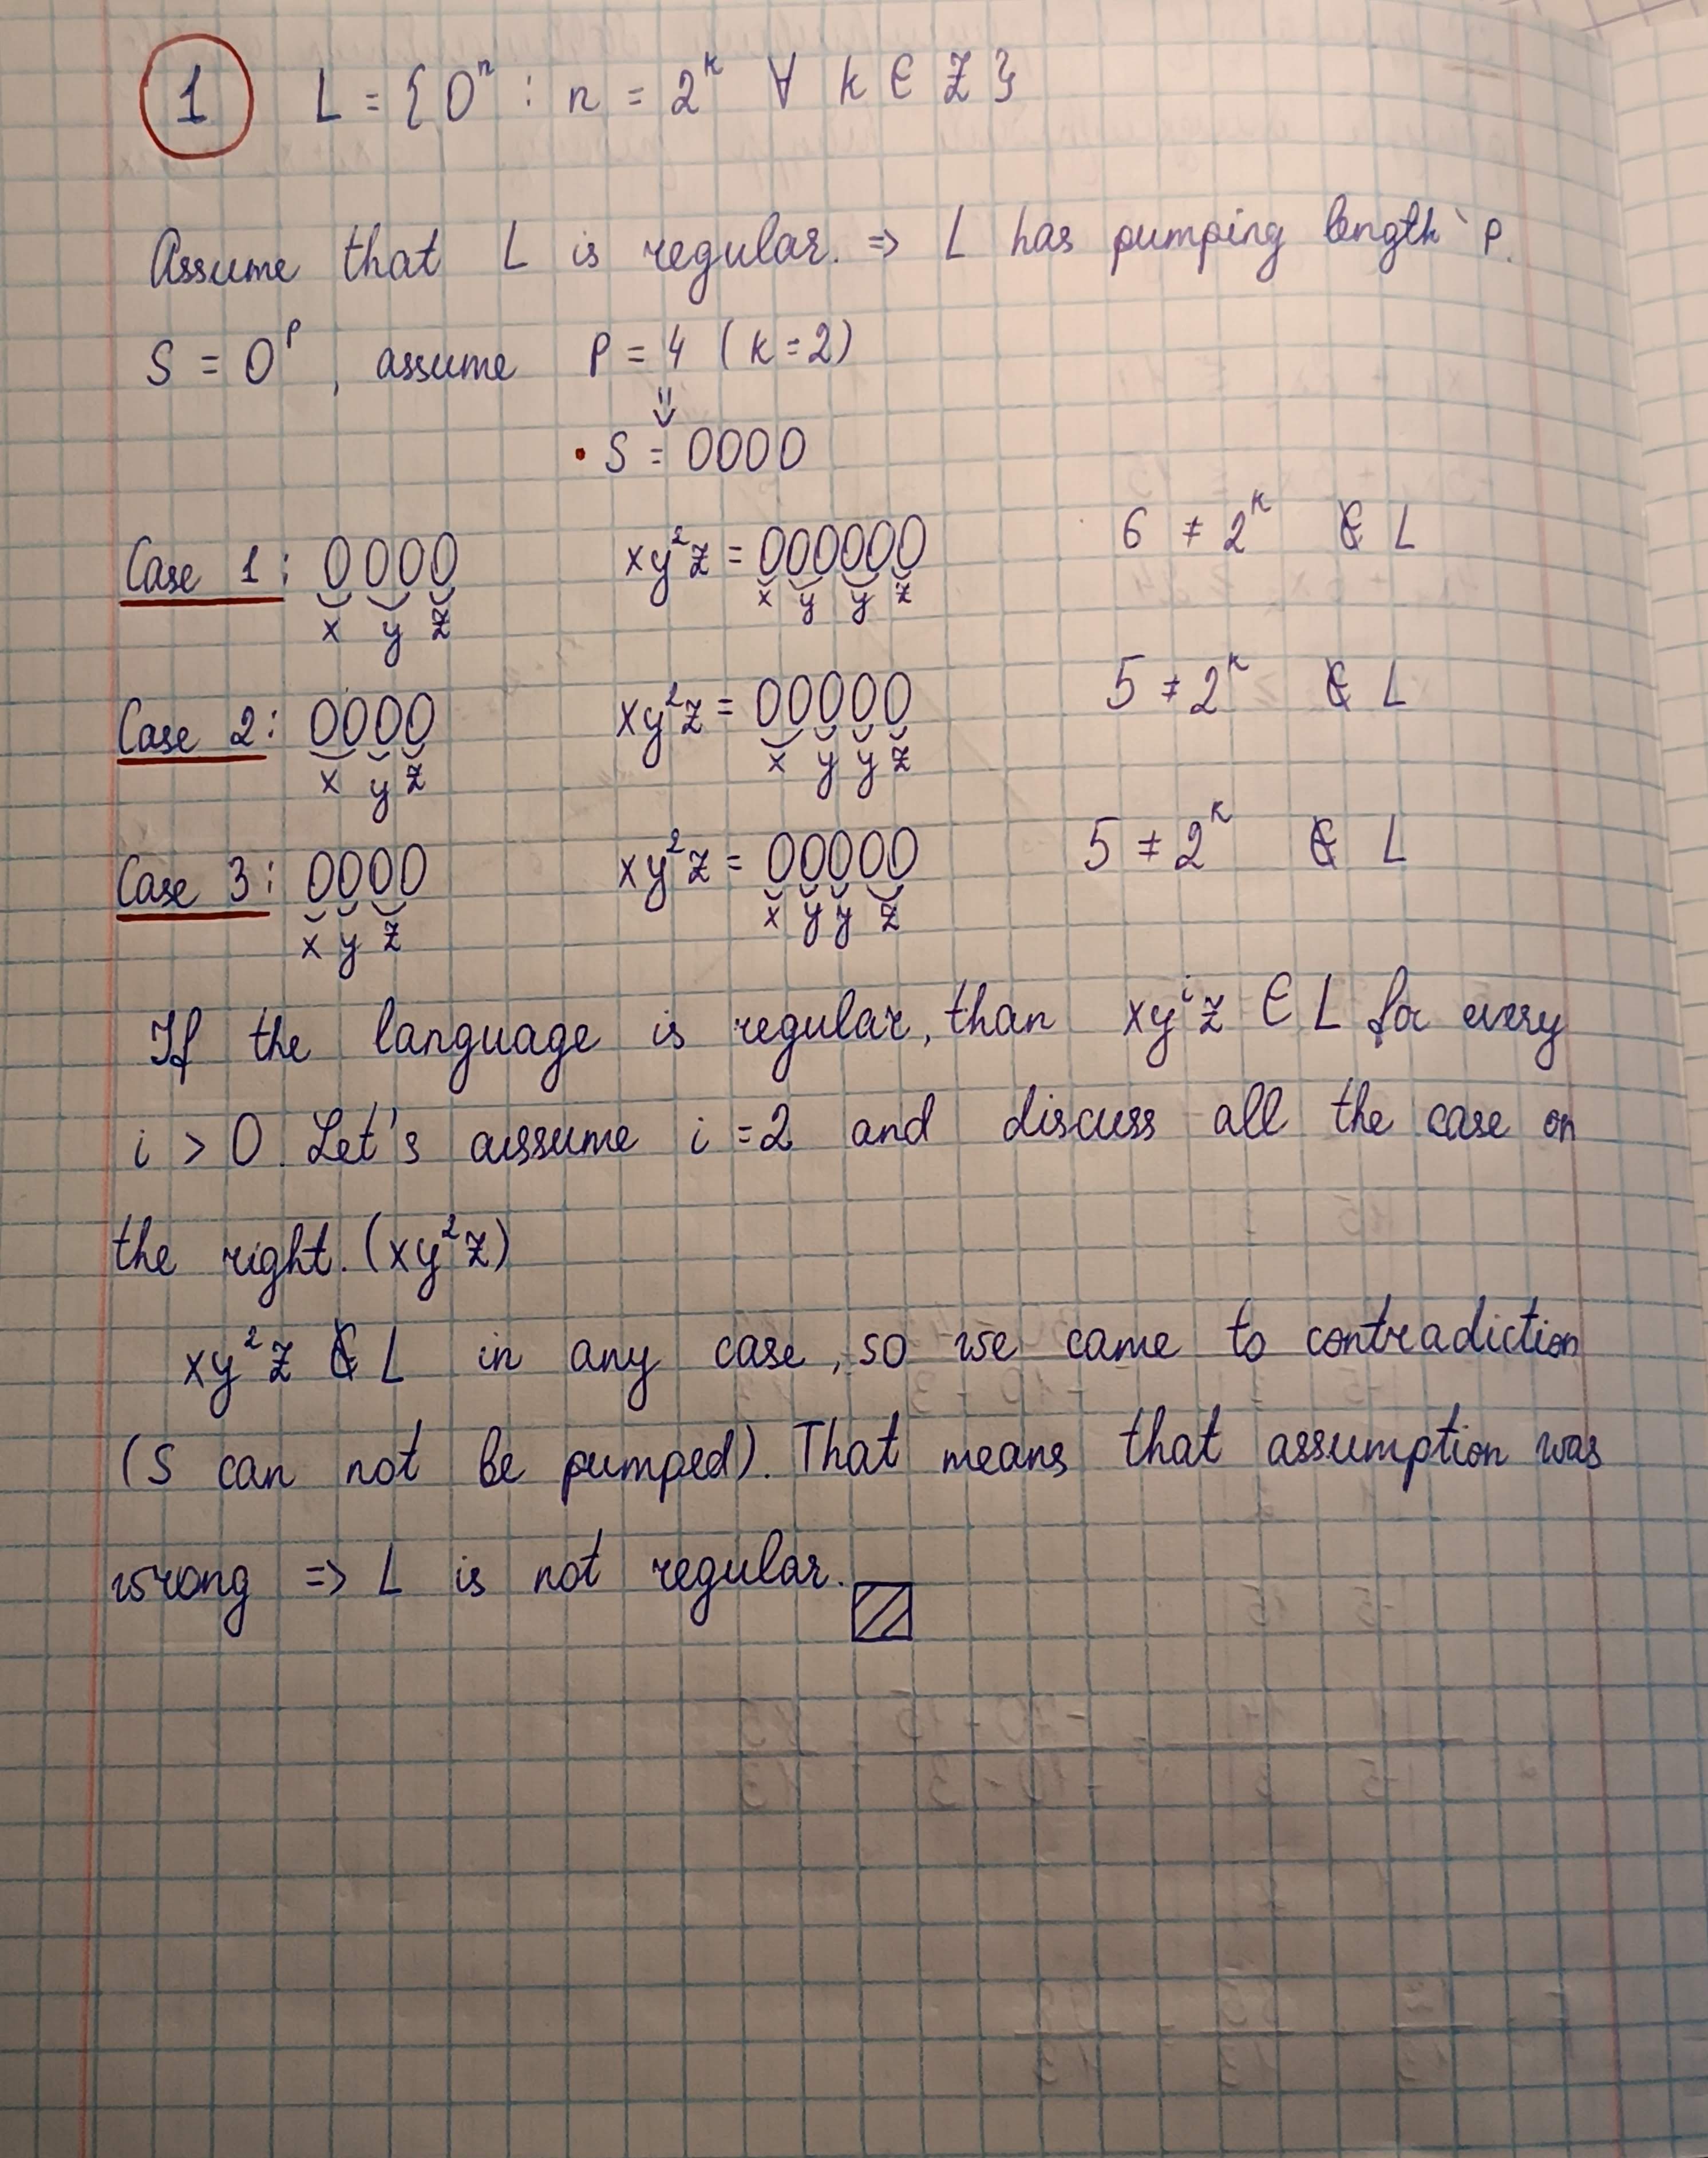 1 L = { 0ⁿ : n = 2ᵏ ∀ k ∈ ℤ }
Assume that L is regular. => L has pumping length p.
S = 0ᵖ, assume p = 4 (k=2)
⇓
• S = 0000
Case 1: 0000 xy²z = 000000 6 ≠ 2ᵏ ∉ L
x y z x y y z
Case 2: 0000 xy²z = 00000 5 ≠ 2ᵏ ∉ L
x y z x y y z
Case 3: 0000 xy²z = 00000 5 ≠ 2ᵏ ∉ L
x y z x y y z
If the language is regular, than xyⁱz ∈ L for every
i > 0. Let's assume i = 2 and discuss all the case on
the right. (xy²z)
xy²z ∉ L in any case, so we came to contradiction
(S can not be pumped). That means that assumption was
wrong => L is not regular.